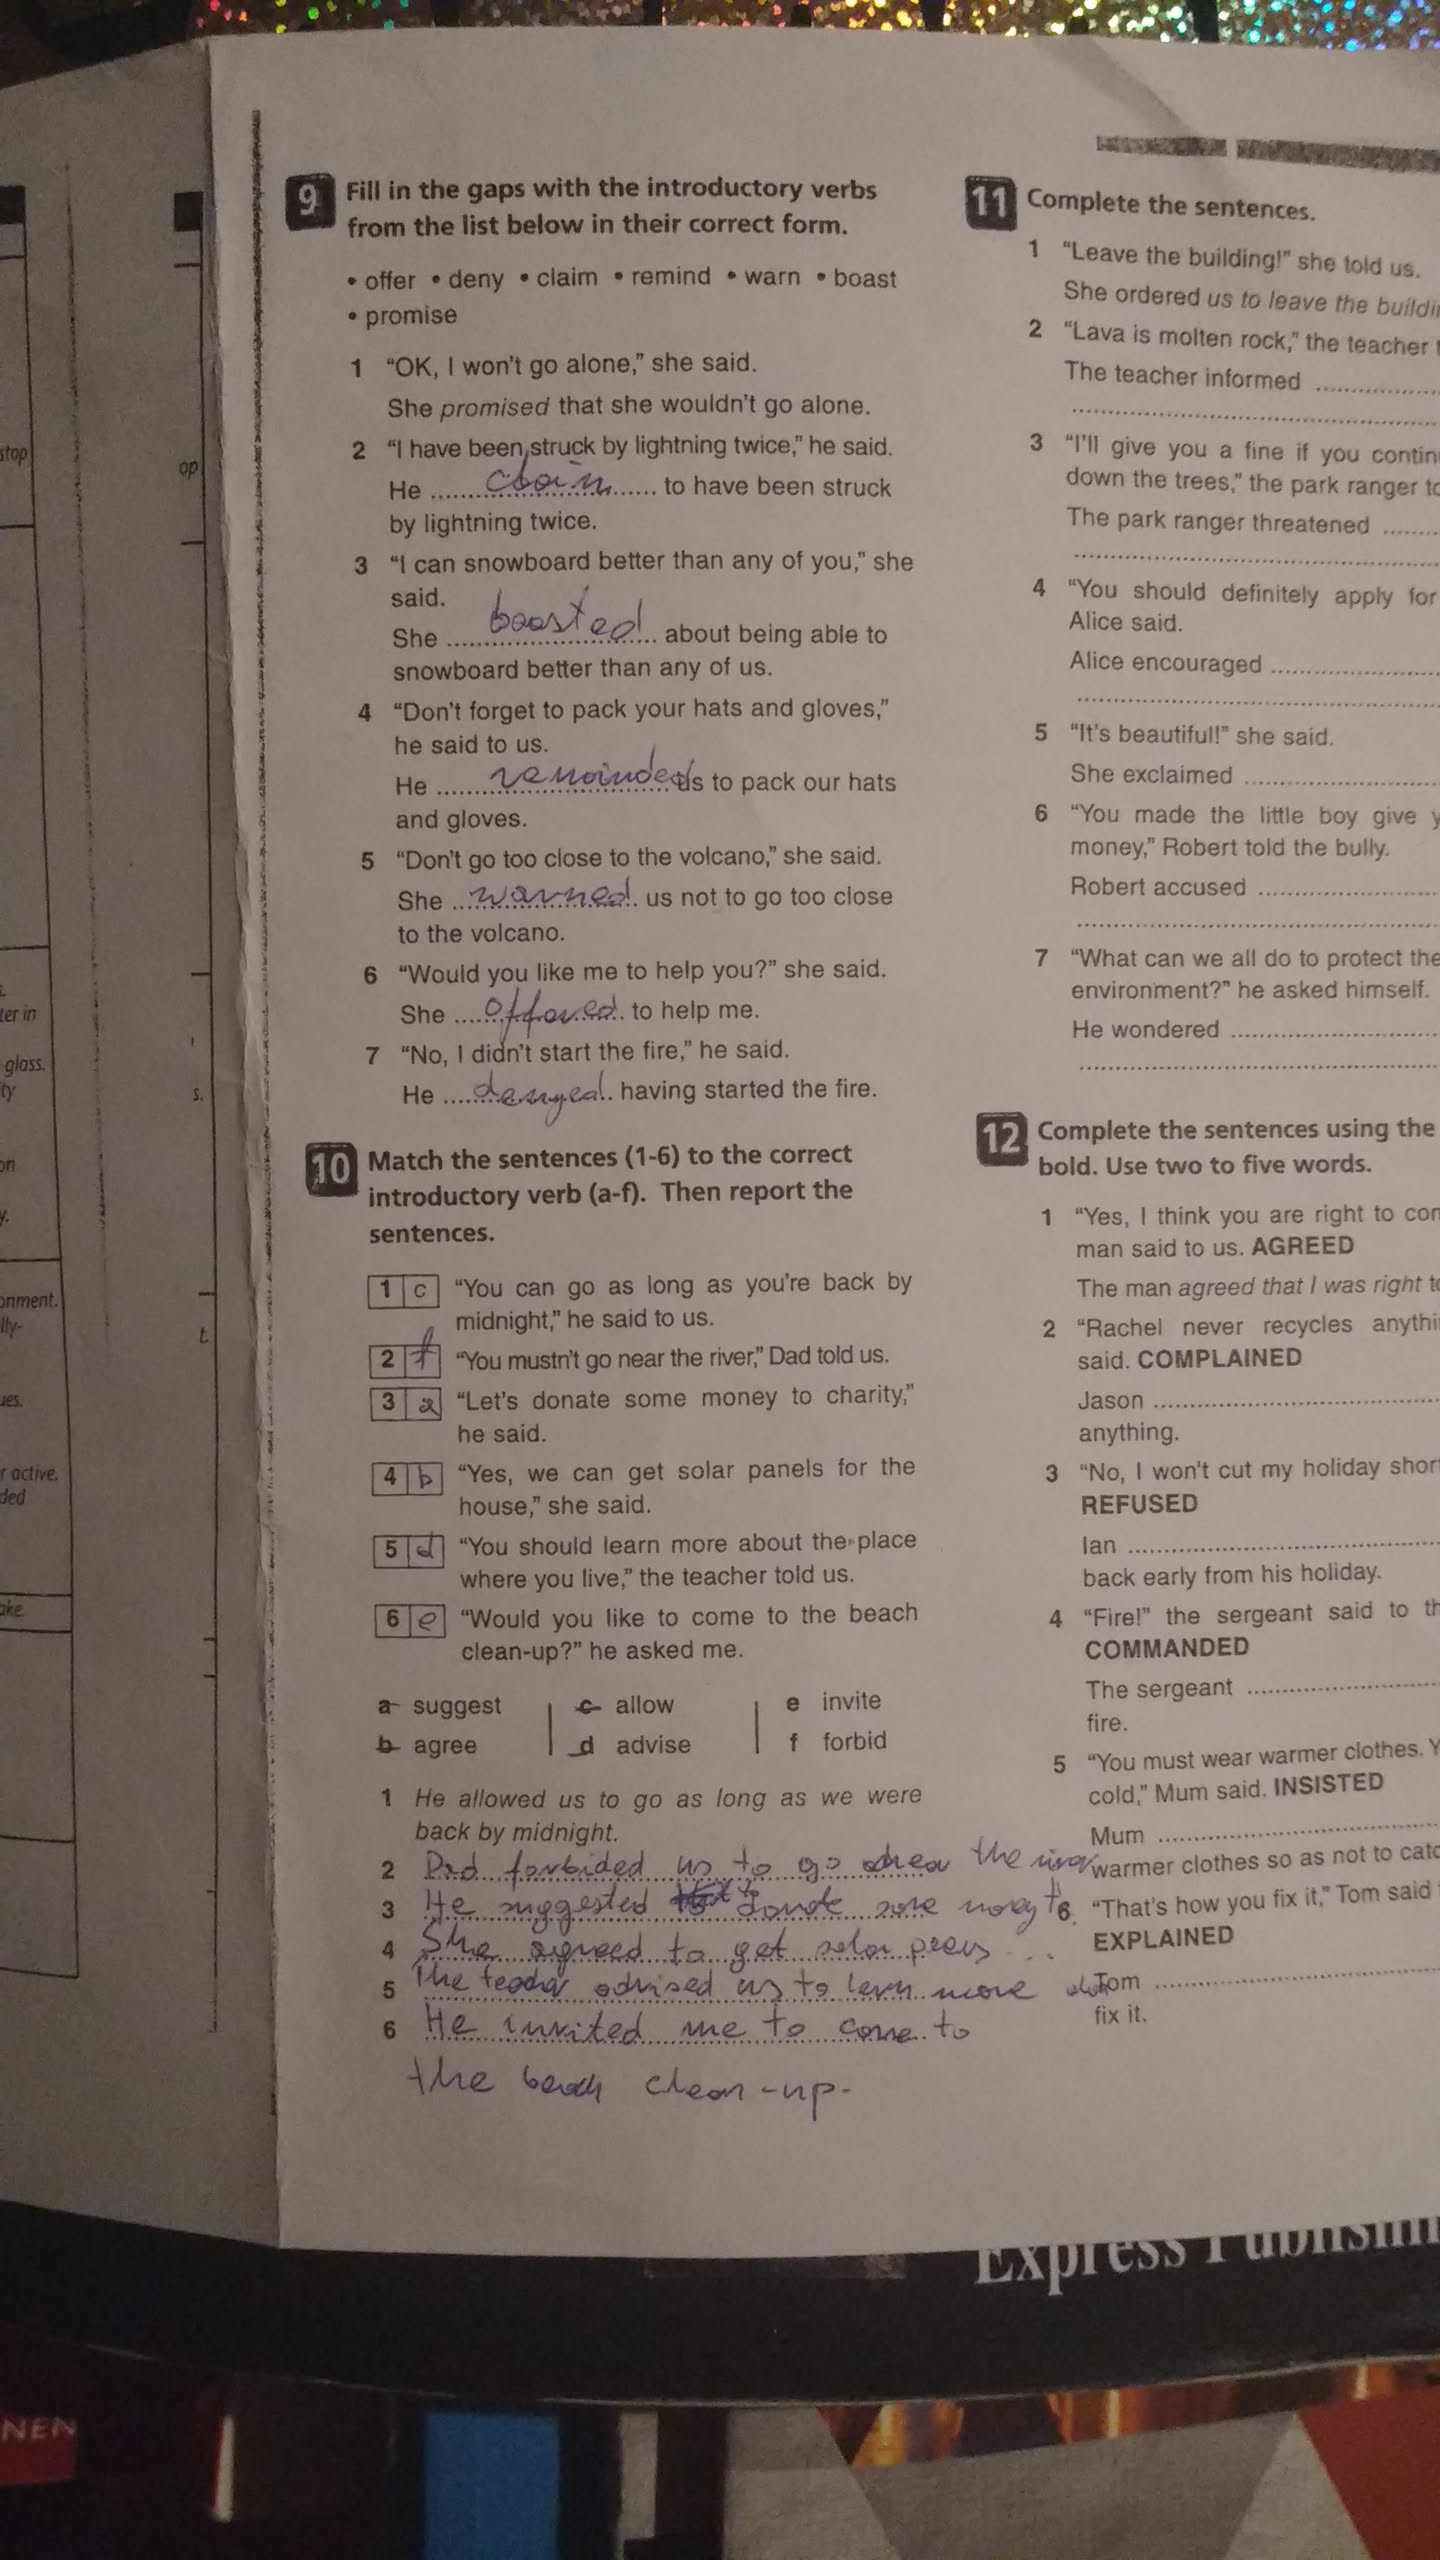 stop
ter in
glass.
ty
on
y.
onment.
lly-
ues.
r active.
ded
ake
op
s.
t
9 Fill in the gaps with the introductory verbs
from the list below in their correct form.
• offer • deny • claim • remind • warn • boast
• promise
1 “OK, I won't go alone,” she said.
She promised that she wouldn't go alone.
2 “I have been struck by lightning twice,” he said.
He claim to have been struck
by lightning twice.
3 “I can snowboard better than any of you,” she
said.
She boosted about being able to
snowboard better than any of us.
4 “Don't forget to pack your hats and gloves,”
he said to us.
He remoinded us to pack our hats
and gloves.
5 “Don't go too close to the volcano,” she said.
She warned us not to go too close
to the volcano.
6 “Would you like me to help you?” she said.
She offared to help me.
7 “No, I didn't start the fire,” he said.
He denyed having started the fire.
10 Match the sentences (1-6) to the correct
introductory verb (a-f). Then report the
sentences.
1 c “You can go as long as you're back by
midnight,” he said to us.
2 f “You mustn't go near the river,” Dad told us.
3 a “Let's donate some money to charity,”
he said.
4 b “Yes, we can get solar panels for the
house,” she said.
5 d “You should learn more about the place
where you live,” the teacher told us.
6 e “Would you like to come to the beach
clean-up?” he asked me.
a suggest c allow e invite
b agree d advise f forbid
1 He allowed us to go as long as we were
back by midnight.
2 Dad forbided us to go the river
3 He suggested to donate some money
4 She agreed to get solar ...
5 The advised us to lern more
6 He invited me to come to
the beach clean-up.
11 Complete the sentences.
1 “Leave the building!” she told us.
She ordered us to leave the buildin
2 “Lava is molten rock,” the teacher
The teacher informed
3 “I'll give you a fine if you contin
down the trees,” the park ranger to
The park ranger threatened
4 “You should definitely apply for
Alice said.
Alice encouraged
5 “It's beautiful!” she said.
She exclaimed
6 “You made the little boy give y
money,” Robert told the bully.
Robert accused
7 “What can we all do to protect the
environment?” he asked himself.
He wondered
12 Complete the sentences using the
bold. Use two to five words.
1 “Yes, I think you are right to con
man said to us. AGREED
The man agreed that I was right to
2 “Rachel never recycles anythi
said. COMPLAINED
Jason
anything.
3 “No, I won't cut my holiday shor
REFUSED
Ian
back early from his holiday.
4 “Fire!” the sergeant said to th
COMMANDED
The sergeant
fire.
5 “You must wear warmer clothes. Y
cold,” Mum said. INSISTED
Mum
warmer clothes so as not to catc
6 “That's how you fix it,” Tom said
EXPLAINED
Tom
fix it.
Express Publishin
NEN